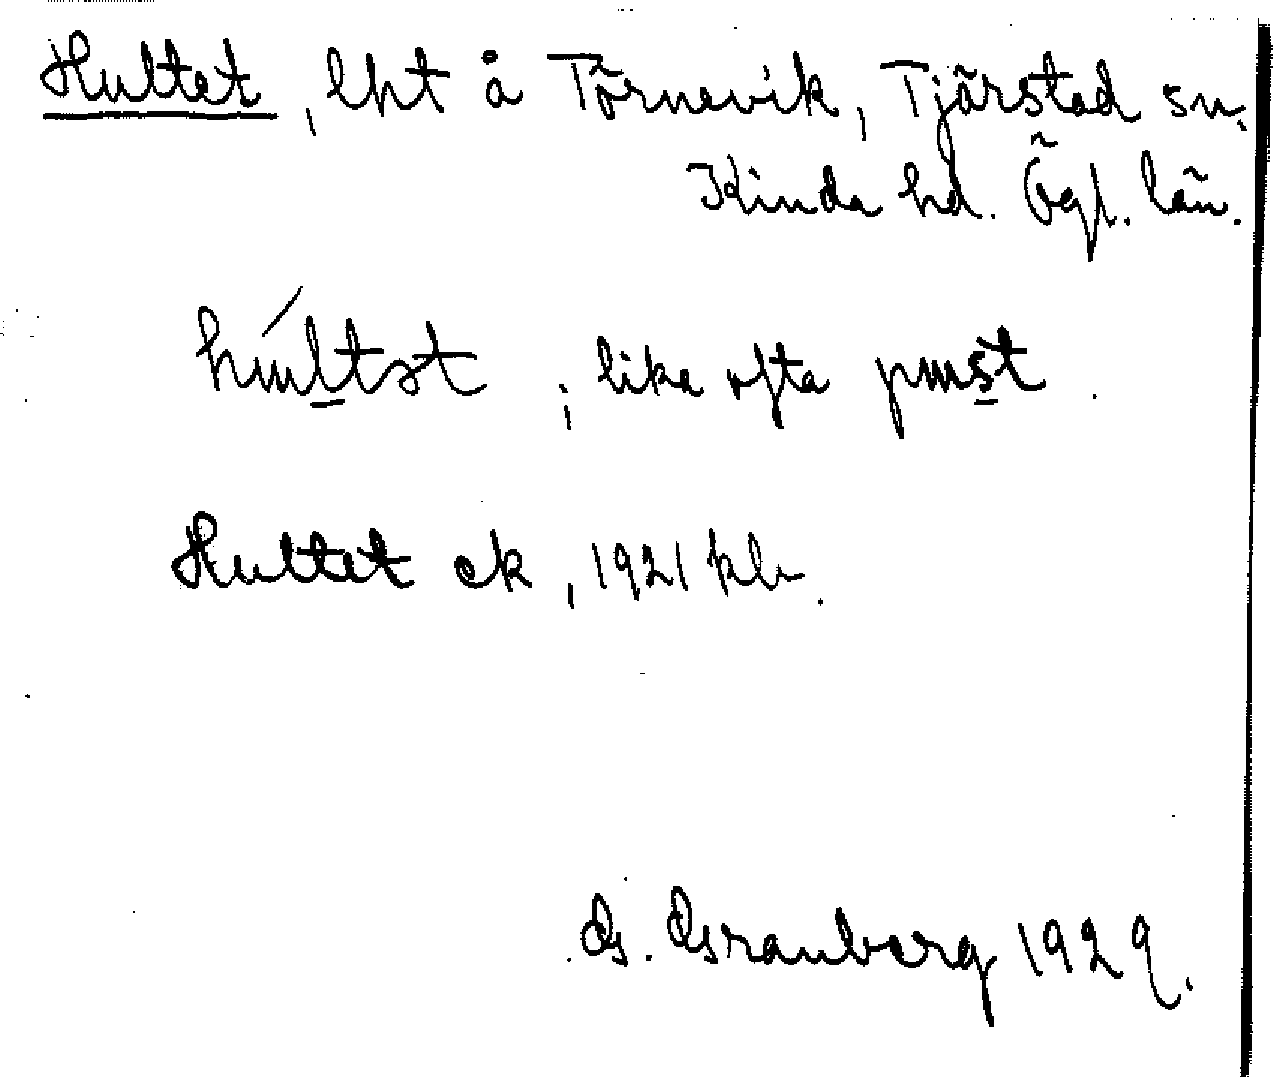 Hultet, lht å Törnevik, Tjärstad sn.
Kinda hd. Ögl. län.
; lika ofta
Hultet ek, 1921 kb.
G. Granberg 1929.